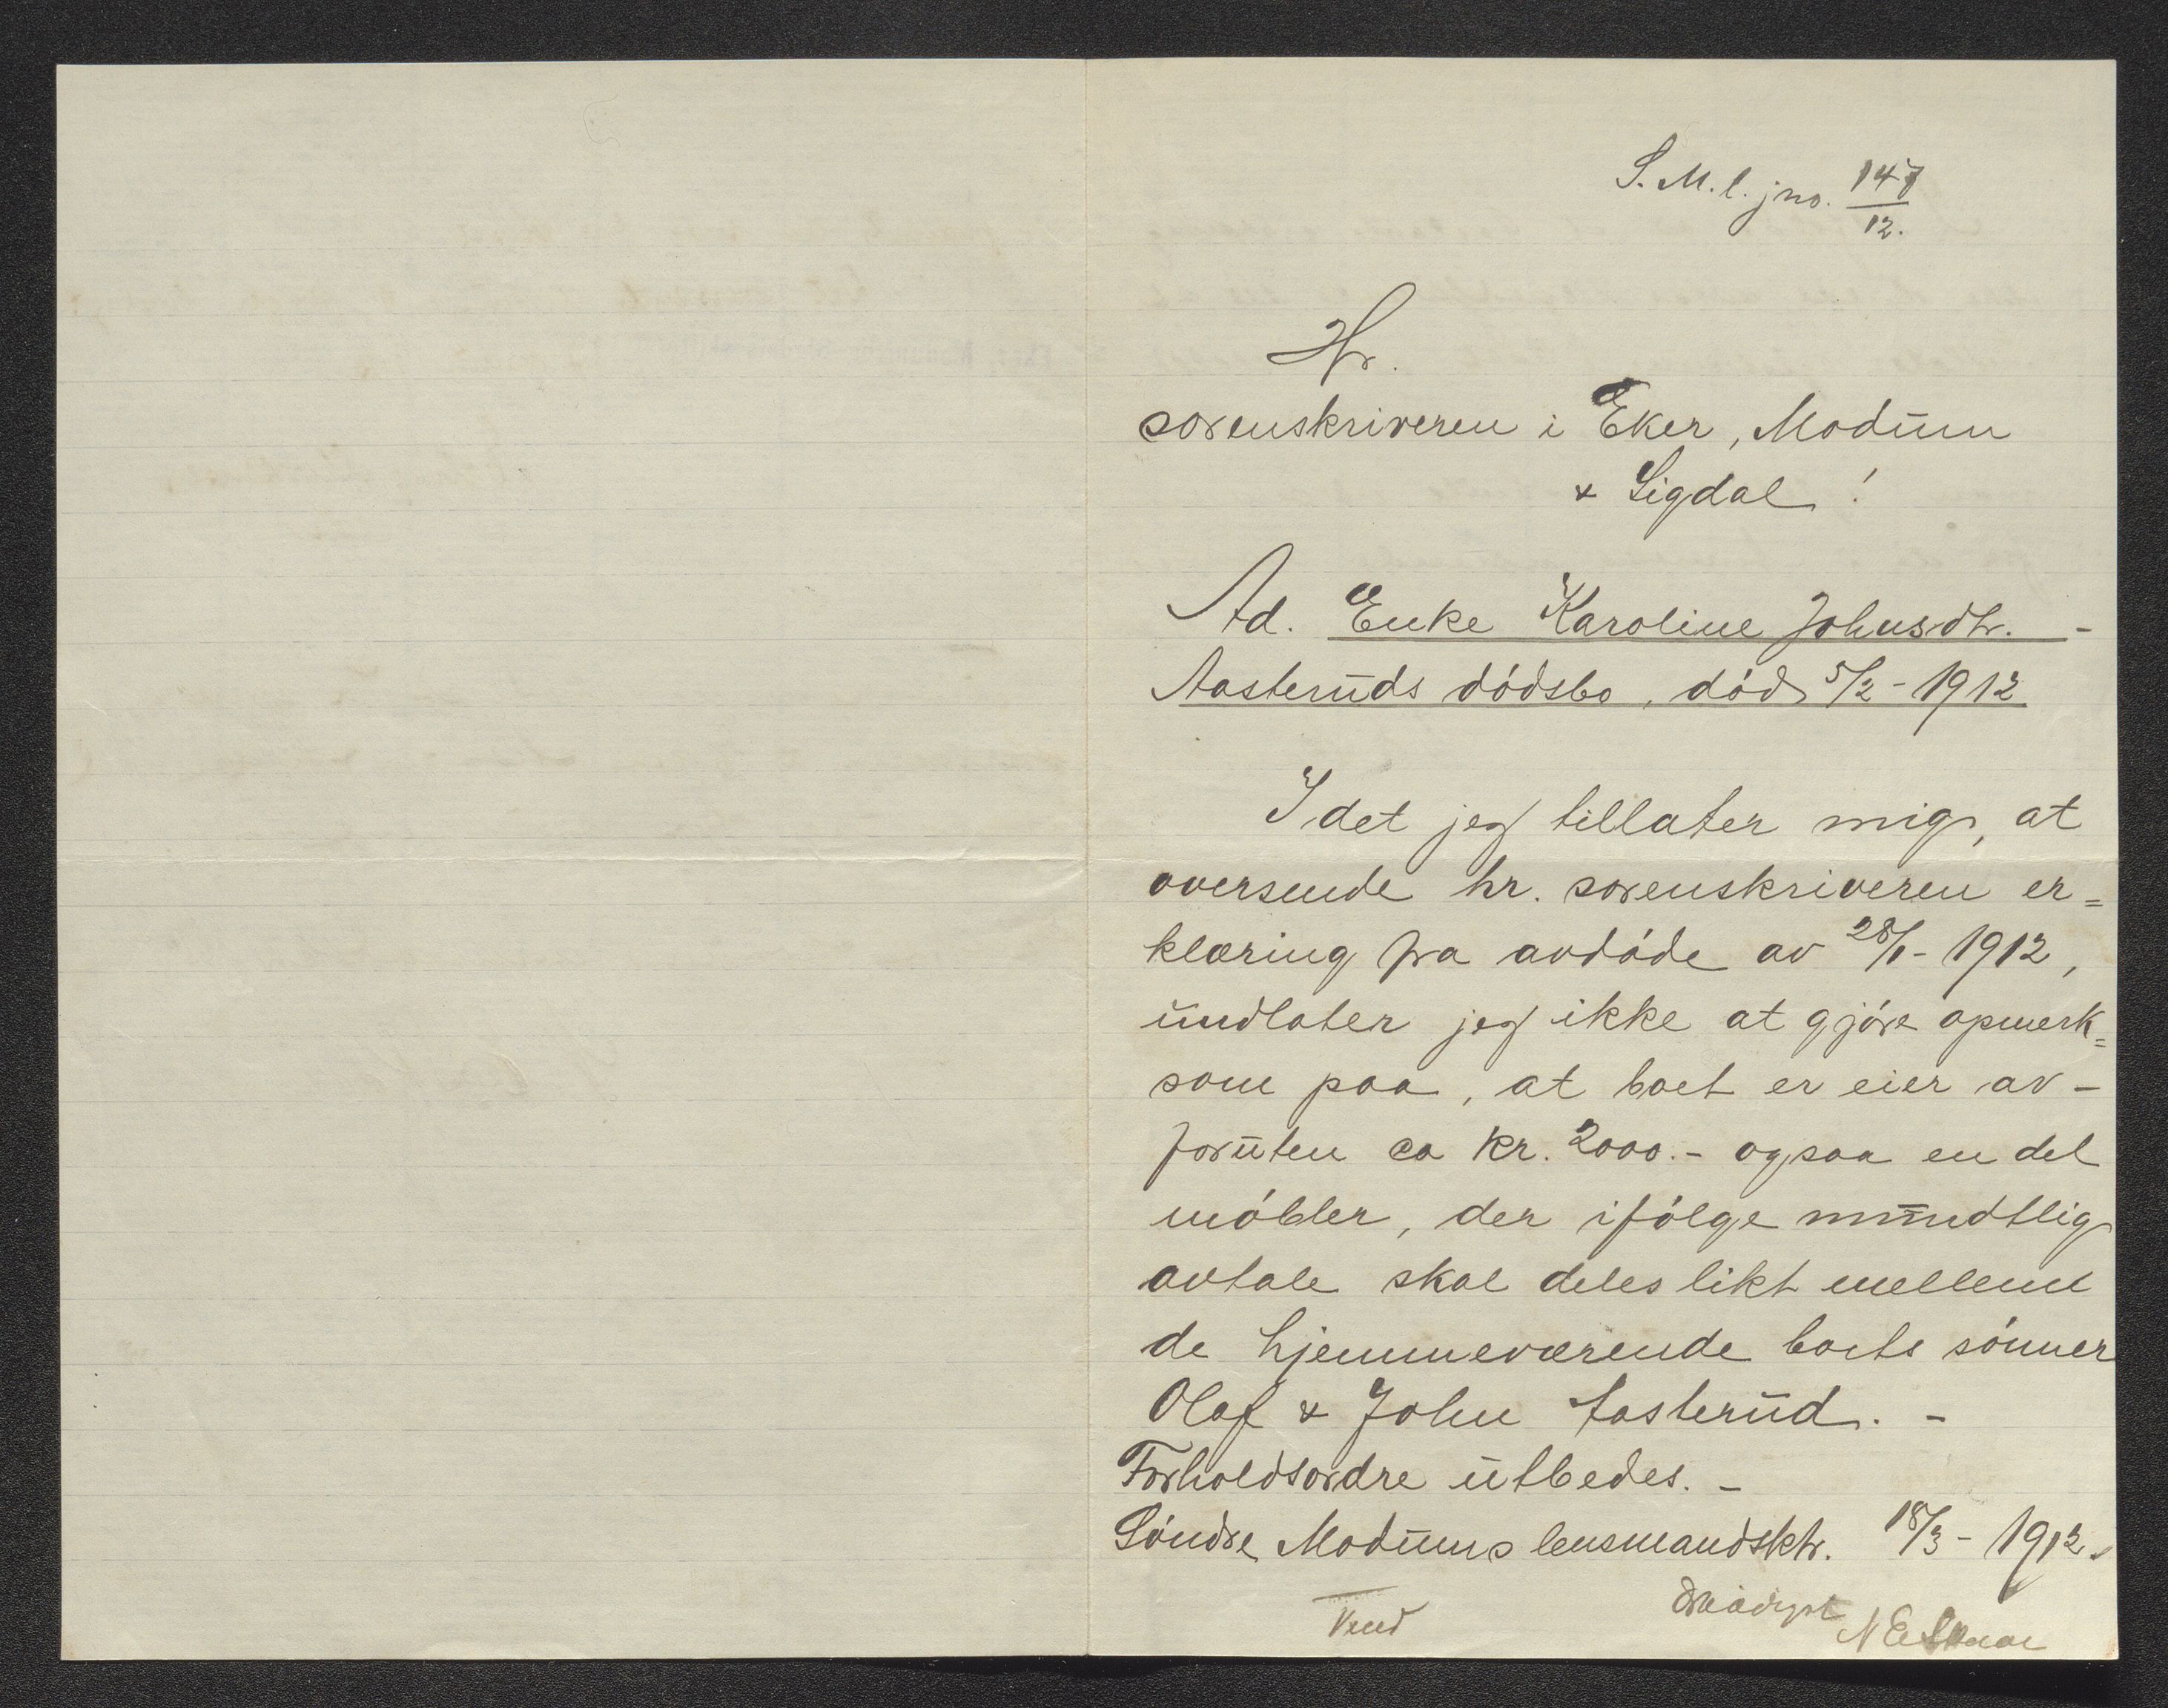 S. M. l. jno. 147/12.
Hr.
sorenskriveren i Eker, Modum
& Sigdal!
Ad. Enke Karoline Johnsdtr. -
Aasteruds dödsbo, död 5/2 - 1912
I det jeg tillater mig, at
oversende hr. sorenskriveren er=
klæring fra avdöde av 28/1 - 1912,
undlater jeg ikke at gjöre opmerk=
som paa, at boet er eier av -
foruten ca kr. 2000.- ogsaa en del
möbler, der ifölge mundtlig
avtale skal deles likt mellem
de hjemmeværende boets sönner
Olaf & John Aasterud. -
Forholdsordre utbedes. -
Söndre Modums lensmandsktr. 18/3 - 1912.
Vend